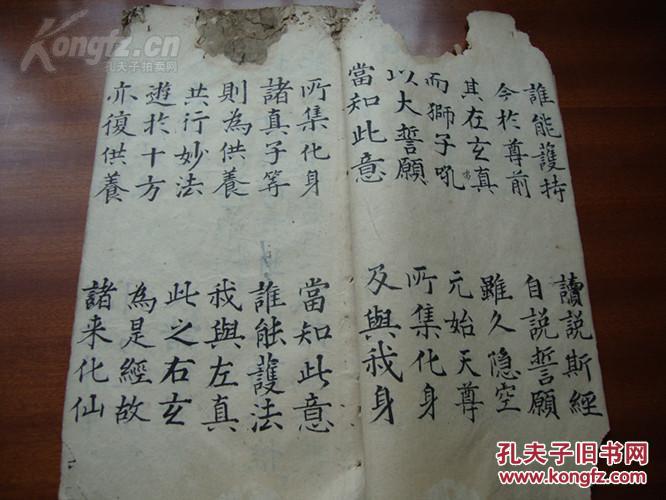 Kongfz.cn
孔夫子拍卖网
誰能護持 讀説斯經
今於尊前 自説誓願
其在玄真 雖久隐空
而獅子吼 元始天尊
以大誓願 所集化身
當知此意 及與我身
所集化身 當知此意
諸真子等 誰能護法
則為供養 我與左真
共行妙法 此之右玄
遊於十方 為是經故
亦復供養 諸来化仙
孔夫子旧书网
KONGFZ.COM